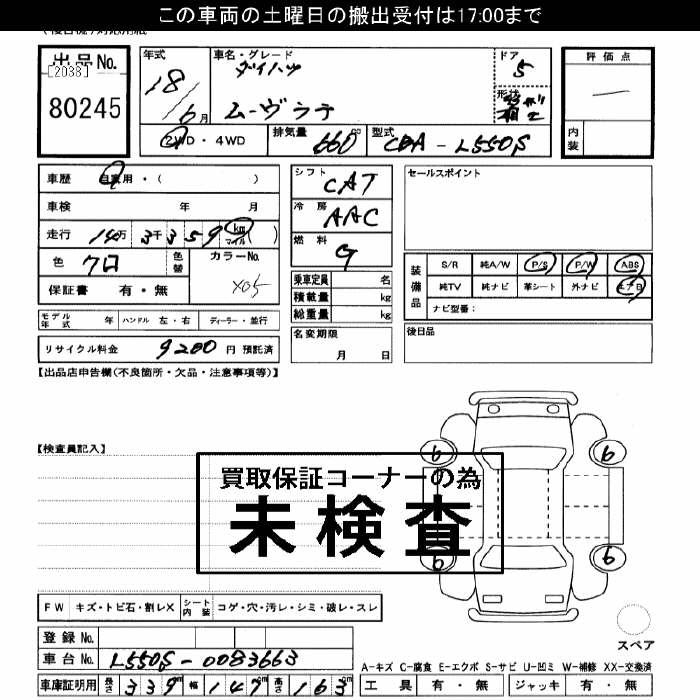 この車両の土曜日の搬出受付は17:00まで
出品No.
[2038]
80245
年式
18/6月
車名・グレード
ダイハツ
ムーヴラテ
ドア
5
形状
評価点
内装
2WD・4WD
排気量 660 cc
型式 CBA-L550S
車歴 自家用・( )
車検 年 月
走行 14万3千359 km マイル ( )
色 クロ 色替
カラーNo.
X05
保証書 有・無
モデル年式 年 ハンドル 左・右 ディーラー・並行
リサイクル料金 9200 円 預託済
シフト CAT
冷房 AAC
燃料 G
乗車定員 名
積載量 kg
総重量 kg
名変期限
月 日
セールスポイント
装備品
S/R 純A/W P/S P/W ABS
純TV 純ナビ 革シート 外ナビ エアB
ナビ型番:
後日品
【出品店申告欄(不良箇所・欠品・注意事項等)】
【検査員記入】
買取保証コーナーの為
未検査
6 6
6 6
スペア
FW キズ・トビ石・割レX シート内装 コゲ・穴・汚レ・シミ・破レ・スレ
登録No.
車台No. L550S-0083663
A-キズ C-腐食 E-エクボ S-サビ U-凹ミ W-補修 XX-交換済
車庫証明用 長さ 339 cm 幅 147 cm 高さ 163 cm
工具 有・無 ジャッキ 有・無